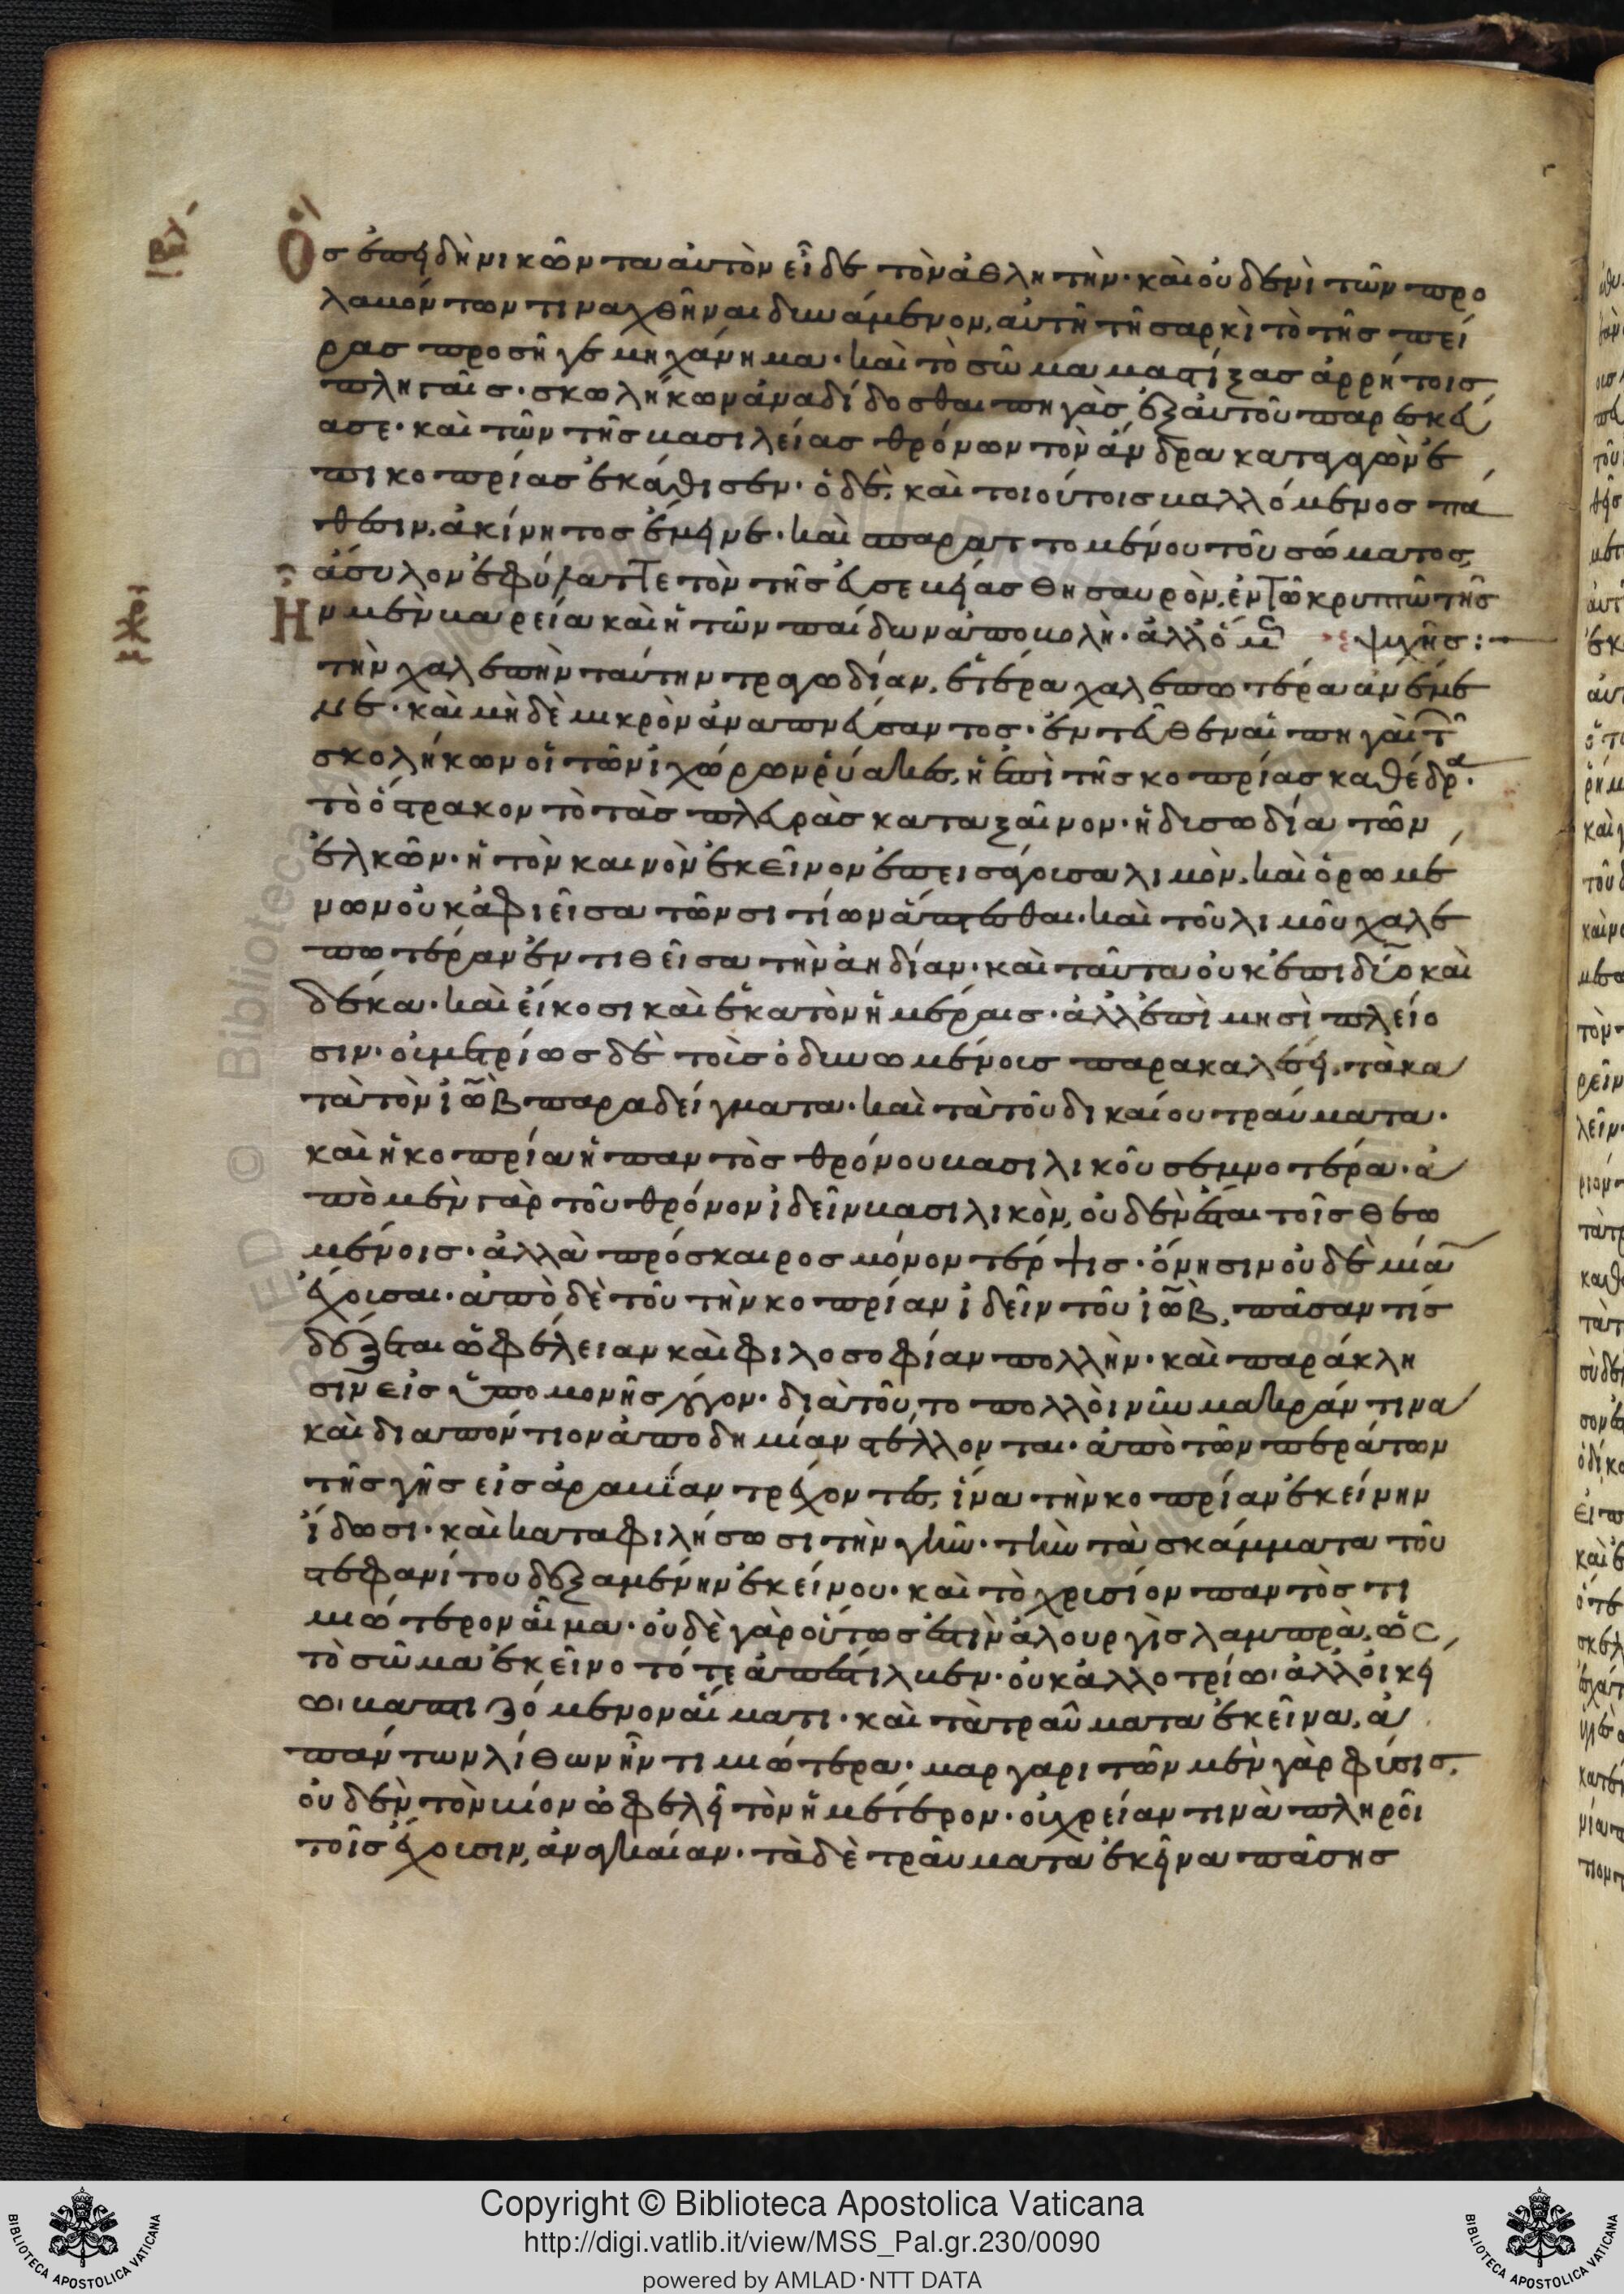 Ὃ
ς ἐπειδὴ νικῶντα αὐτὸν εἶδε τὸν ἀθλητὴν· καὶ οὐδενὶ τῶν προ
λαβόντων τιναχθῆναι δυνάμενον, αὐτῆ τῆ σαρκὶ τὸ τῆς πεί
ρας προσῆγε μηχάνημα· καὶ τὸ σῶμα μαστίξας ἀρρήτοις
πληγαῖς· σκωλήκων ἀναδίδοσθαι πηγὰς ἐξ αὐτοῦ παρεσκεύ
ασε· καὶ τῶν τῆς βασιλείας θρόνων τὸν ἄνδρα καταγαγὼν ἐ
πὶ κοπρίας ἐκάθισεν· ὁ δὲ, καὶ τοιούτοις βαλλόμενος πά
θεσιν, ἀκίνητος ἔμεινε· καὶ σπαραττομένου τοῦ σώματος,
ἄσυλον ἐφύλαττε τὸν τῆς εὐσεβείας θησαυρὸν, ἐν τῶ κρυπτῶ τῆς
ψυχῆς:
Ἦ
ν μὲν βαρεία καὶ ἡ τῶν παίδων ἀποβολὴ· ἀλλ' ὅμ
τὴν χαλεπὴν ταύτην τραγωδίαν, ἑτέρα χαλεπωτέρα ἀνέμε
νε· καὶ μὴ δὲ μικρὸν ἀναπνεύσαντος· ἐντεῦθεν αἱ πηγαὶ τῶ
σκολήκων οἱ τῶν ἰχώρων ῥύακες, ἡ ἐπὶ τῆς κοπρίας καθέδρα·
τὸ ὄστρακον τὸ τὰς πλευρὰς καταξαῖνον· ἡ δυσωδία τῶν
ἑλκῶν· ἢ τὸν καινὸν ἐκεῖνον ἐπεισάγουσα λιμὸν, καὶ ὁρωμέ
νων οὐκ ἀφιεῖσα τῶν σιτίων ἅπτεσθαι· καὶ τοῦ λιμοῦ χαλε
πωτέραν ἐντιθεῖσα τὴν ἀηδίαν· καὶ ταῦτα οὐκ ἐπὶ δύο καὶ
δέκα· καὶ εἴκοσι καὶ ἑκατὸν ἡμέραις· ἀλλ' ἐπὶ μησὶ πλείο
σιν· οὐ μετρίως δὲ τοῖς ὀδυνωμένοις παρακαλέσει, τὰ κα
τὰ τὸν ἰὼβ παραδείγματα· καὶ τὰ τοῦ δικαίου τραύματα·
καὶ ἡ κοπρία ἡ παντὸς θρόνου βασιλικοῦ σεμνοτέρα· ἀ
πὸ μὲν γὰρ τοῦ θρόνον ἰδεῖν βασιλικὸν, οὐδὲν ἔσται τοῖς θεω
μένοις· ἀλλὰ πρόσκαιρος μόνον τέρψις· ὄνησιν οὐδὲ μίαν
ἔχουσα· ἀπὸ δὲ τοῦ τὴν κοπρίαν ἰδεῖν τοῦ ἰὼβ, πᾶσαν τίς
δέξεται ὠφέλειαν καὶ φιλοσοφίαν πολλὴν· καὶ παράκλη
σιν εἰς ὑπομονῆς λόγον· διὰ τοῦτο πολλοὶ νῦν μακράν τινα
καὶ διαπόντιον ἀποδημίαν στέλλονται· ἀπὸ τῶν περάτων
τῆς γῆς εἰς ἀραβίαν τρέχοντες, ἵνα τὴν κοπρίαν ἐκείνην
ἴδωσι· καὶ καταφιλήσωσι τὴν γῆν· τὴν τὰ σκάμματα τοῦ
στεφανίτου δεξαμένην ἐκείνου· καὶ τὸ χρυσίου παντὸς τι
μιώτερον αἷμα· οὐδὲ γὰρ οὕτως ἐστὶν ἁλουργὶς λαμπρὰ, ὡς
τὸ σῶμα ἐκεῖνο τότε ἀπέστιλβεν· οὐκ ἀλλοτρίω· ἀλλ' οἰκεί
ω· βαπτιζόμενον αἵματι· καὶ τὰ τραύματα ἐκεῖνα, ἁ
πάντων λίθων ἦν τιμιώτερα· μαργαριτῶν μὲν γὰρ φύσις,
οὐδὲν τὸν βίον ὠφελεῖ τὸν ἡμέτερον· οὐ χρείαν τινὰ πληροῖ
τοῖς ἔχουσιν, ἀναγκαίαν· τὰ δὲ τραύματα ἐκεῖνα πάσης
Copyright © Biblioteca Apostolica Vaticana
http://digi.vatlib.it/view/MSS_Pal.gr.230/0090
powered by AMLAD·NTT DATA
BIBLIOTECA APOSTOLICA VATICANA
BIBLIOTECA APOSTOLICA VATICANA